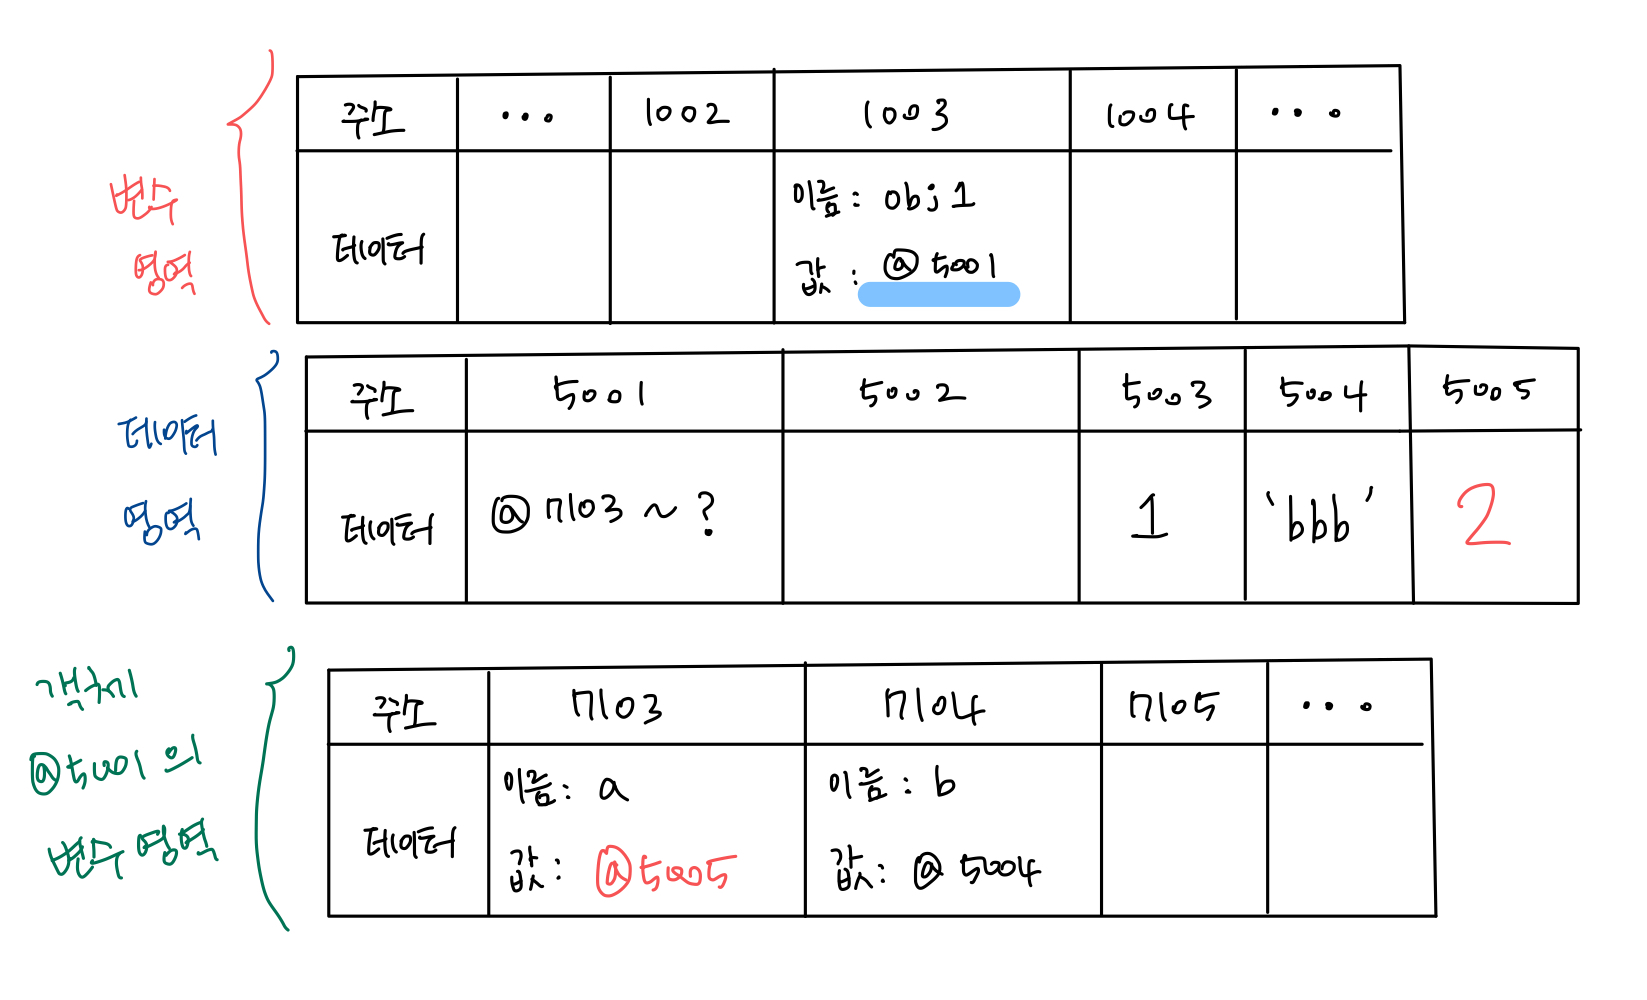 변수
영역
주소 ... 1002 1003 1004 ...
데이터
이름: obj1
값: @5001
데이터
영역
주소 5001 5002 5003 5004 5005
데이터 @7103 ~ ? 1 'bbb' 2
객체
@5001의
변수 영역
주소 7103 7104 7105 ...
데이터
이름: a
값: @5005
이름: b
값: @5004